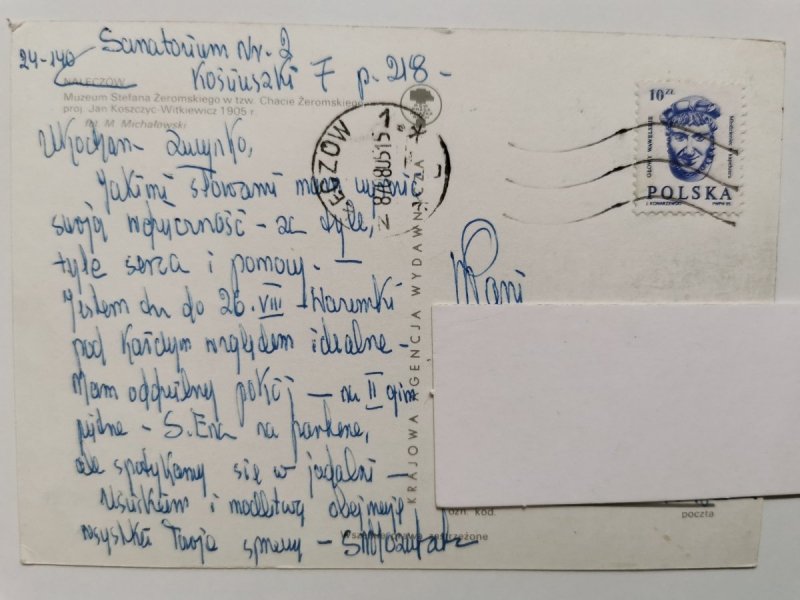 24-140
Sanatorium Nr. 2
Kościuszki 7 p. 218 -
NAŁĘCZÓW
Muzeum Stefana Żeromskiego w tzw. Chacie Żeromskiego
proj. Jan Koszczyc-Witkiewicz 1905 r.
fot. M. Michałowski
Ukochana
Jakimi słowami mam wyrazić
swoją wdzięczność - za tyle,
tyle serca i pomocy. -
Jestem tu do 26. VIII - Warunki
pod każdym względem idealne -
Mam oddzielny pokój - na II gim
piętrze - S. Ena na parterze,
ale spotykamy się w jadalni -
Uściskiem i modlitwą obejmuję
wszystkie Twoje sprawy -
KRAJOWA AGENCJA WYDAWNICZA
10 ZŁ
GŁOWY WAWELSKIE
POLSKA
Pani
kod
poczta
zastrzeżone